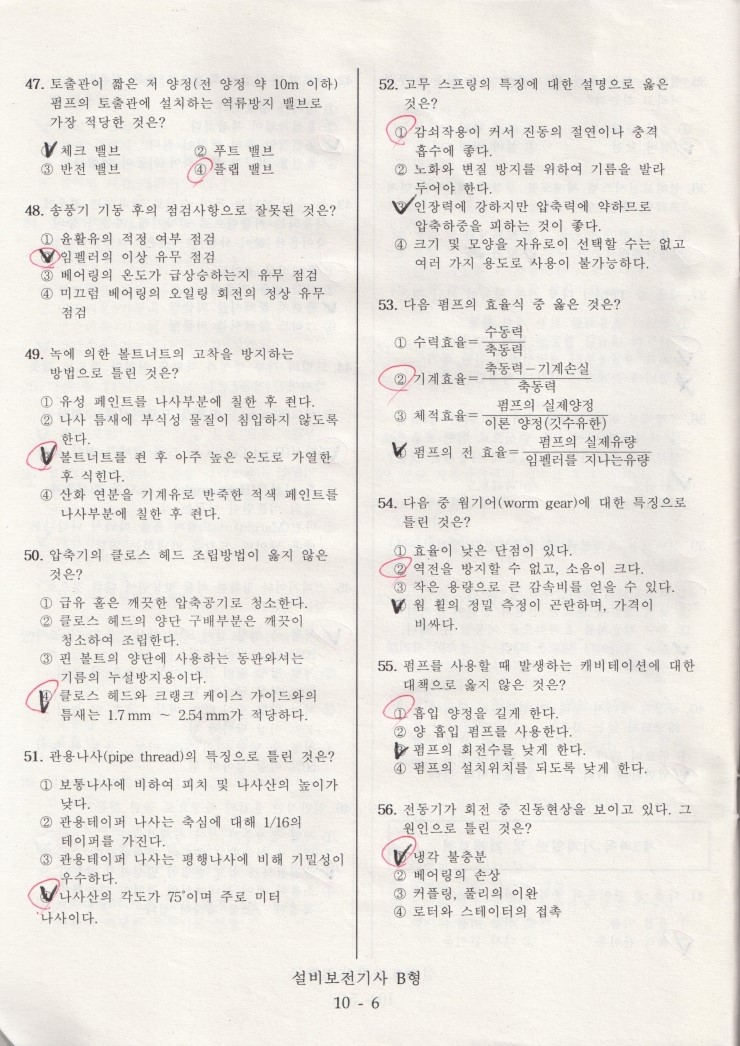 47. 토출관이 짧은 저 양정(전 양정 약 10m 이하)
펌프의 토출관에 설치하는 역류방지 밸브로
가장 적당한 것은?
① 체크 밸브 ② 푸트 밸브
③ 반전 밸브 ④ 플랩 밸브
48. 송풍기 기동 후의 점검사항으로 잘못된 것은?
① 윤활유의 적정 여부 점검
② 임펠러의 이상 유무 점검
③ 베어링의 온도가 급상승하는지 유무 점검
④ 미끄럼 베어링의 오일링 회전의 정상 유무
점검
49. 녹에 의한 볼트너트의 고착을 방지하는
방법으로 틀린 것은?
① 유성 페인트를 나사부분에 칠한 후 죈다.
② 나사 틈새에 부식성 물질이 침입하지 않도록
한다.
③ 볼트너트를 죈 후 아주 높은 온도로 가열한
후 식힌다.
④ 산화 연분을 기계유로 반죽한 적색 페인트를
나사부분에 칠한 후 죈다.
50. 압축기의 클로스 헤드 조립방법이 옳지 않은
것은?
① 급유 홀은 깨끗한 압축공기로 청소한다.
② 클로스 헤드의 양단 구배부분은 깨끗이
청소하여 조립한다.
③ 핀 볼트의 양단에 사용하는 동판와셔는
기름의 누설방지용이다.
④ 클로스 헤드와 크랭크 케이스 가이드와의
틈새는 1.7㎜ ~ 2.54㎜가 적당하다.
51. 관용나사(pipe thread)의 특징으로 틀린 것은?
① 보통나사에 비하여 피치 및 나사산의 높이가
낮다.
② 관용테이퍼 나사는 축심에 대해 1/16의
테이퍼를 가진다.
③ 관용테이퍼 나사는 평행나사에 비해 기밀성이
우수하다.
④ 나사산의 각도가 75°이며 주로 미터
나사이다.
52. 고무 스프링의 특징에 대한 설명으로 옳은
것은?
① 감쇠작용이 커서 진동의 절연이나 충격
흡수에 좋다.
② 노화와 변질 방지를 위하여 기름을 발라
두어야 한다.
③ 인장력에 강하지만 압축력에 약하므로
압축하중을 피하는 것이 좋다.
④ 크기 및 모양을 자유로이 선택할 수는 없고
여러 가지 용도로 사용이 불가능하다.
53. 다음 펌프의 효율식 중 옳은 것은?
① 수력효율=수동력/축동력
② 기계효율=축동력-기계손실/축동력
③ 체적효율=펌프의 실제양정/이론 양정(깃수유한)
④ 펌프의 전 효율=펌프의 실제유량/임펠러를 지나는유량
54. 다음 중 웜기어(worm gear)에 대한 특징으로
틀린 것은?
① 효율이 낮은 단점이 있다.
② 역전을 방지할 수 없고, 소음이 크다.
③ 작은 용량으로 큰 감속비를 얻을 수 있다.
④ 웜 휠의 정밀 측정이 곤란하며, 가격이
비싸다.
55. 펌프를 사용할 때 발생하는 캐비테이션에 대한
대책으로 옳지 않은 것은?
① 흡입 양정을 길게 한다.
② 양 흡입 펌프를 사용한다.
③ 펌프의 회전수를 낮게 한다.
④ 펌프의 설치위치를 되도록 낮게 한다.
56. 전동기가 회전 중 진동현상을 보이고 있다. 그
원인으로 틀린 것은?
① 냉각 불충분
② 베어링의 손상
③ 커플링, 풀리의 이완
④ 로터와 스테이터의 접촉
설비보전기사 B형
10 - 6